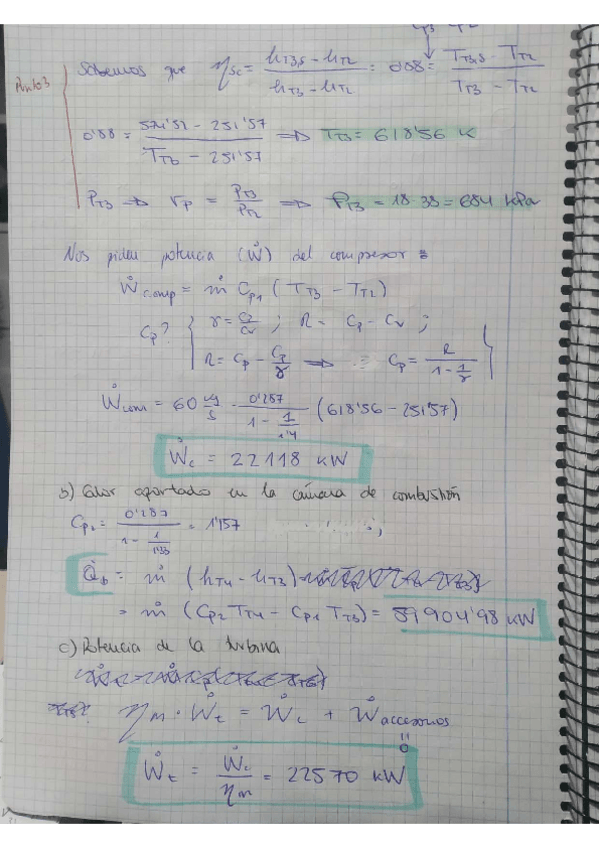 Punto3
Sabemos que ηsc = (hT3,s - hT2)/(hT3 - hT2) = 0'88 = (TT3,s - TT2)/(TT3 - TT2)
0'88 = (574'51 - 251'57)/(TT3 - 251'57) ⇒ TT3 = 618'56 K
PT3 ⇒ rp = PT3/PT2 ⇒ PT3 = 18·38 = 684 kPa
Nos piden potencia (Ẇ) del compresor:
Ẇcomp = ṁ Cp1 (TT3 - TT2)
Cp? { γ = Cp/Cv ; R = Cp - Cv ;
R = Cp - Cp/γ ⇒ Cp = R/(1 - 1/γ) }
Ẇcom = 60 kg/s · 0'287/(1 - 1/1'4) (618'56 - 251'57)
Ẇc = 22118 kW
b) Calor aportado en la cámara de combustión
Cp2 = 0'287/(1 - 1/1'33) = 1'157 ;
Q̇b = ṁ (hT4 - hT3)
= ṁ (Cp2 TT4 - Cp1 TT3) = 59904'98 kW
c) Potencia de la turbina
ηm · Ẇt = Ẇc + Ẇaccesorios
0
Ẇt = Ẇc/ηm = 22570 kW